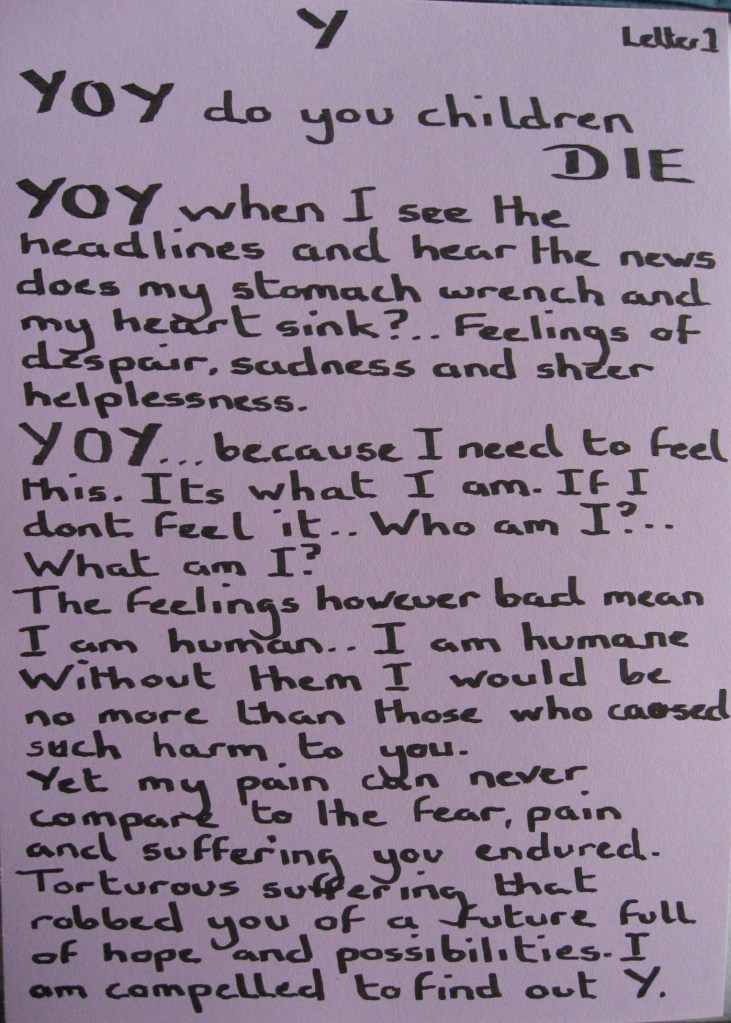 Y
Letter 1
YOY do you children
DIE
YOY when I see the
headlines and hear the news
does my stomach wrench and
my heart sink?.. Feelings of
despair, sadness and sheer
helplessness.
YOY... because I need to feel
this. Its what I am. If I
dont feel it.. Who am I?...
What am I?
The feelings however bad mean
I am human.. I am humane
Without them I would be
no more than those who caused
such harm to you.
Yet my pain can never
compare to the fear, pain
and suffering you endured.
Torturous suffering that
robbed you of a future full
of hope and possibilities. I
am compelled to find out Y.